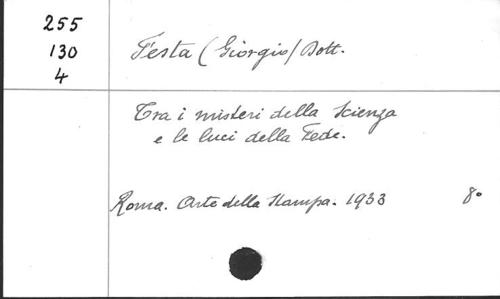 255
130
4
Festa (Giorgio) Dott.
Tra i misteri della Scienza
e le luci della Fede.
Roma. Arte della Stampa. 1933 8°